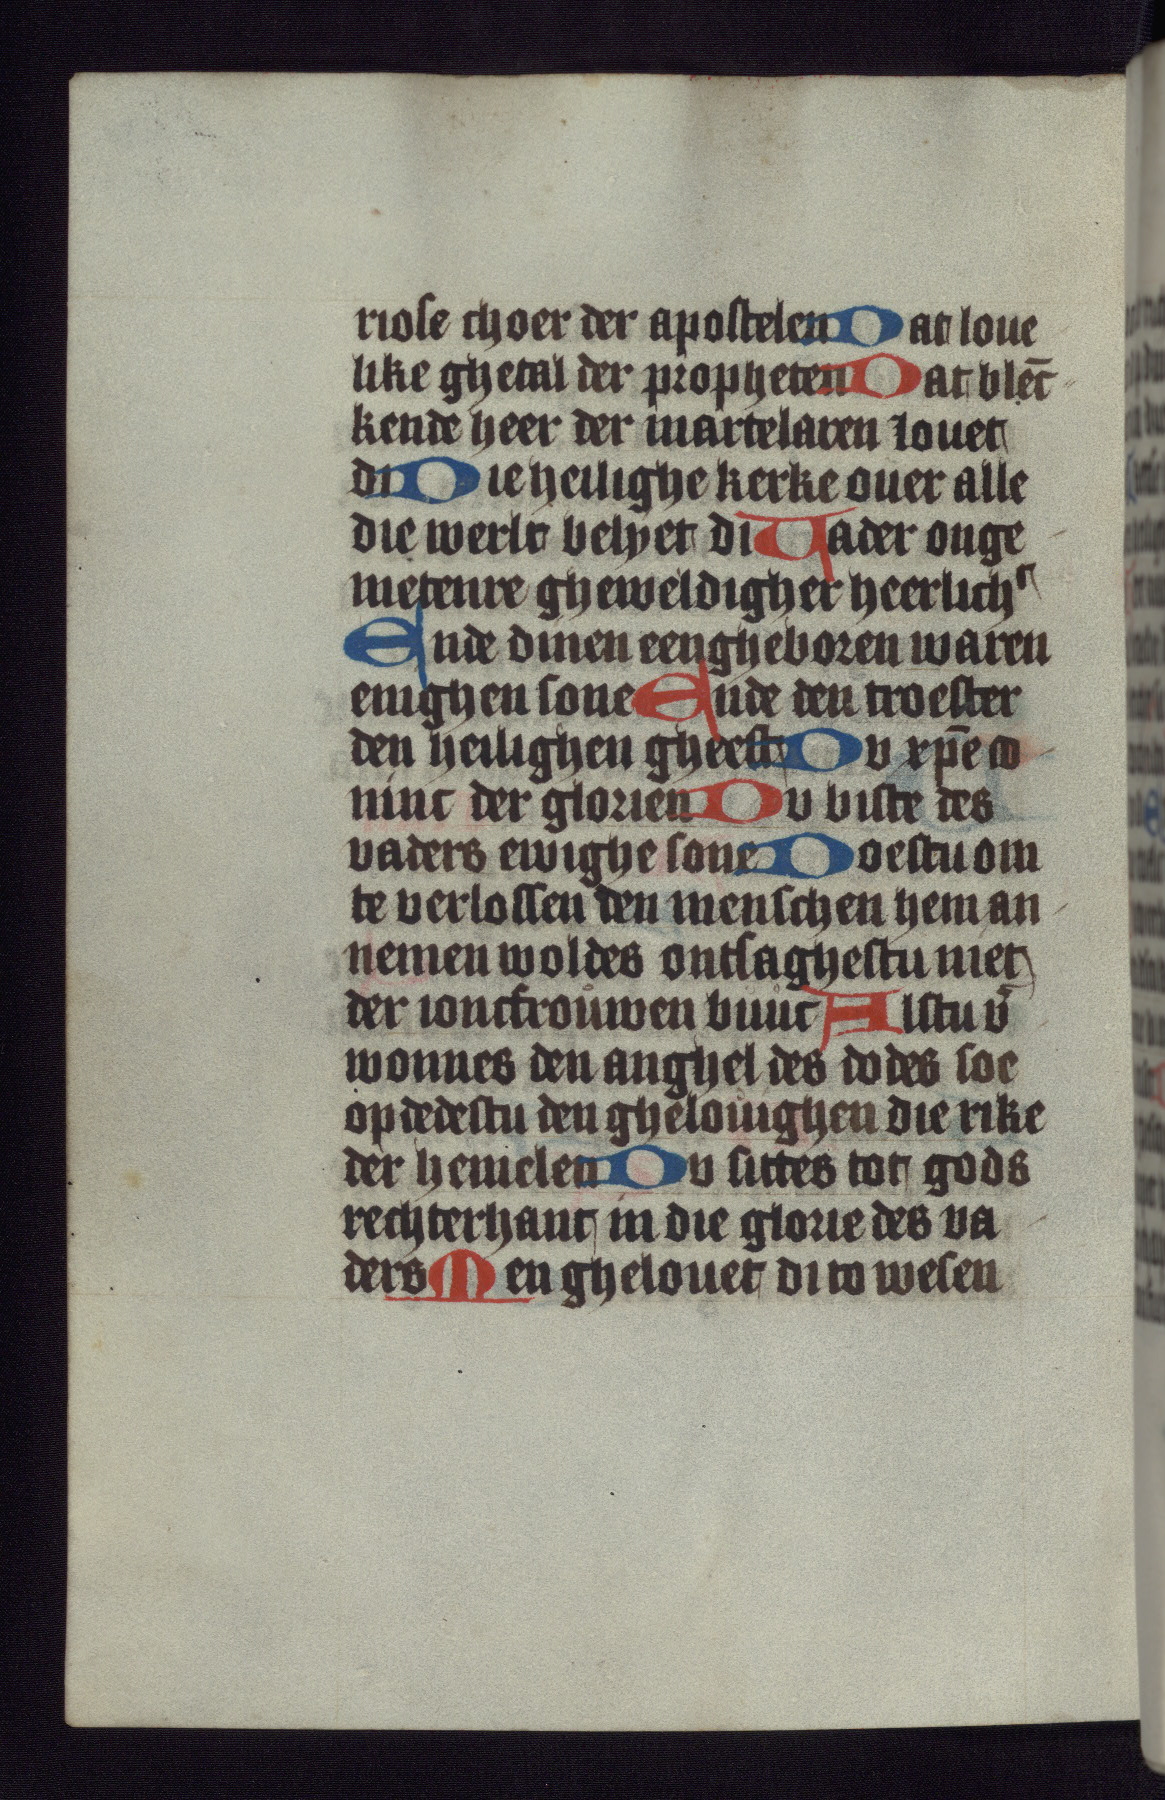 riose choer der apostelen Dat loue
like ghetal der propheten Dat blēc
kende heer der martelaren louet
di Die heilighe kerke ouer alle
die werlt belyet di Uader onge
metenre gheweldigher heerlichᵗ
Ende dinen eengheboren waren
enighen sone Ende den troester
den heilighen gheest Du xp̄e co
ninc der glorien Du biste des
vaders ewighe sone Doestu om
te verlossen den menschen hem an
nemen woldes ontsaghestu niet
der ioncfrouwen buuc Alstu v̄
wonnes den anghel des dodes soe
opdedestu den ghelouighen die rike
der hemelen Du sittes tot gods
rechterhant in die glorie des va
ders Men ghelouet di to wesen